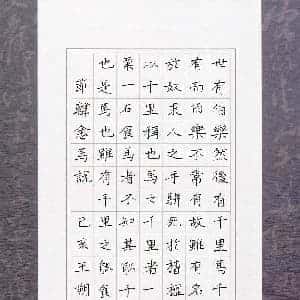 世有伯樂然後有千里馬千
有而伯樂不常有故雖有名
於奴隶人之手駢死於槽櫪
以千里稱也馬之千里者一
粟一石食馬者不知其能千
也是馬也雖有千里之能食
節韓愈馬說 己亥